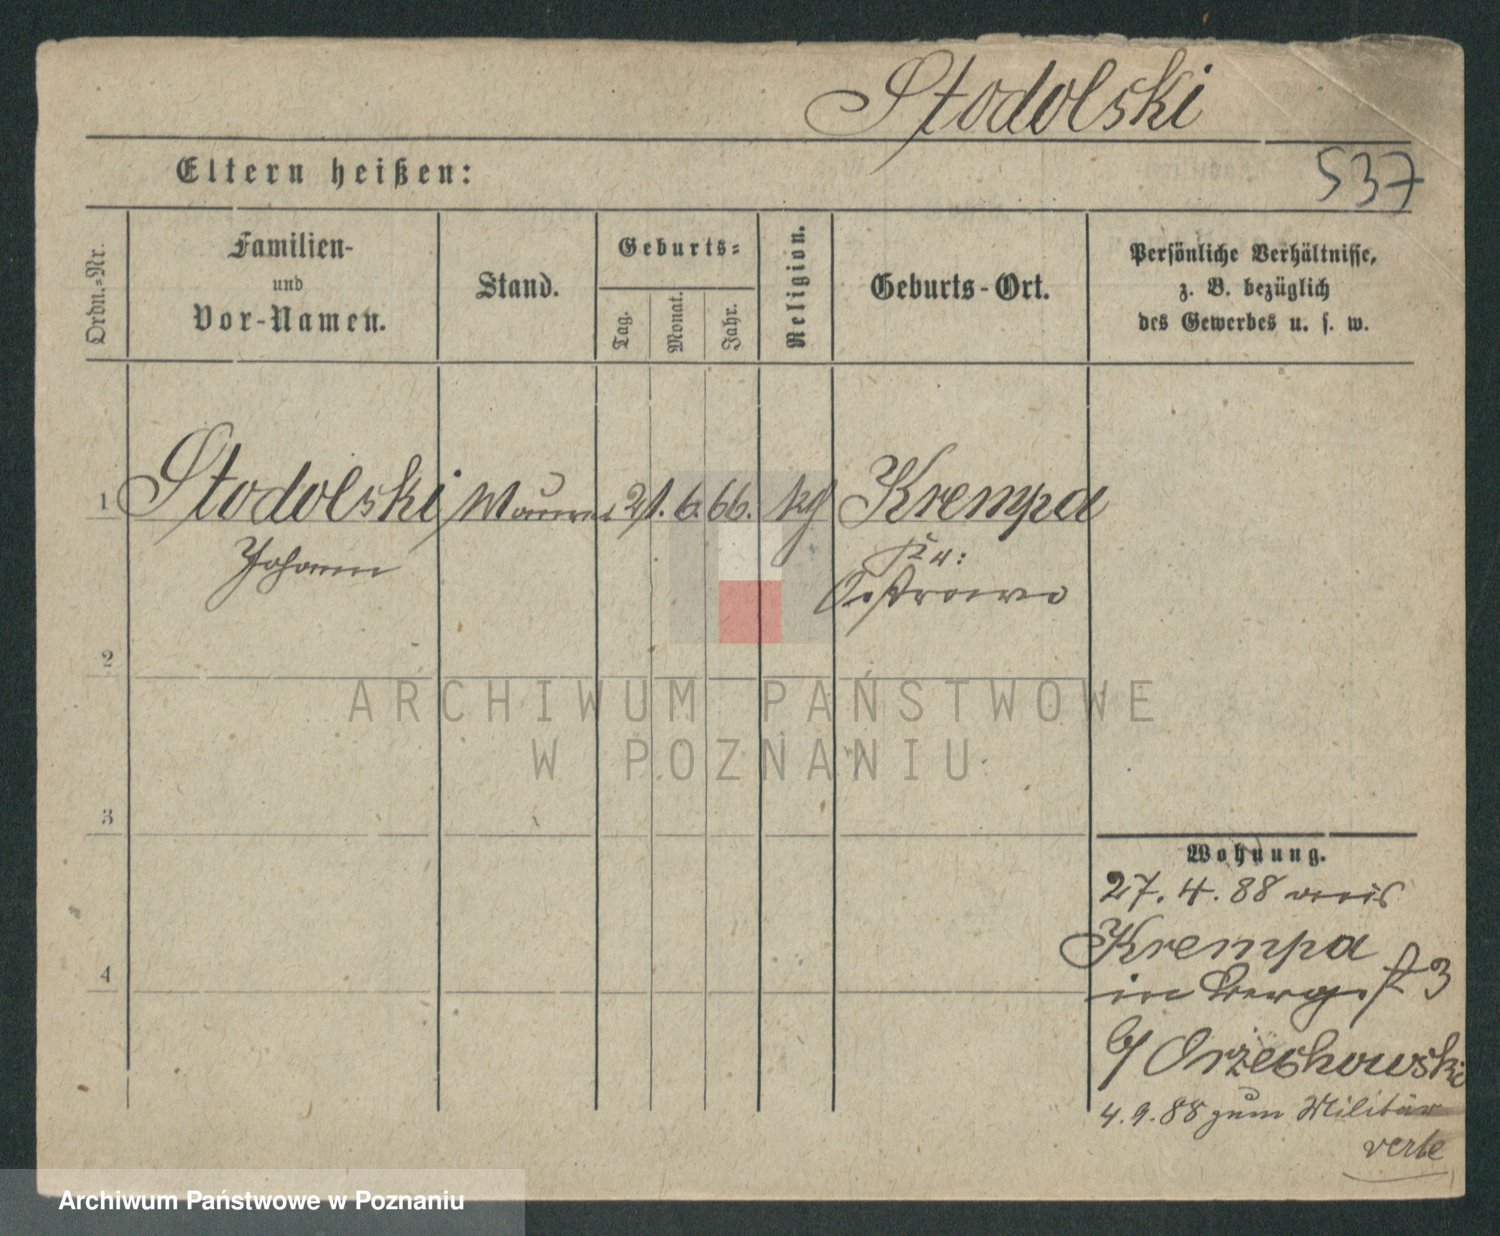 Stodolski
Eltern heißen:
537
Ordn.=Nr.
Familien-
und
Vor-Namen.
Stand.
Geburts=
Tag.
Monat.
Jahr.
Religion.
Geburts-Ort.
Persönliche Verhältnisse,
z. B. bezüglich
des Gewerbes u. s. w.
1 Stodolski Maurer 21. 6. 66. Krempa
Johann
Kr:
Ostrowo
2
ARCHIWUM PAŃSTWOWE
W POZNANIU
3
Wohnung.
27. 4. 88 aus
Krempa
4
3
b/ Orzechowski
4. 9. 88 zum Militär
verte
Archiwum Państwowe w Poznaniu